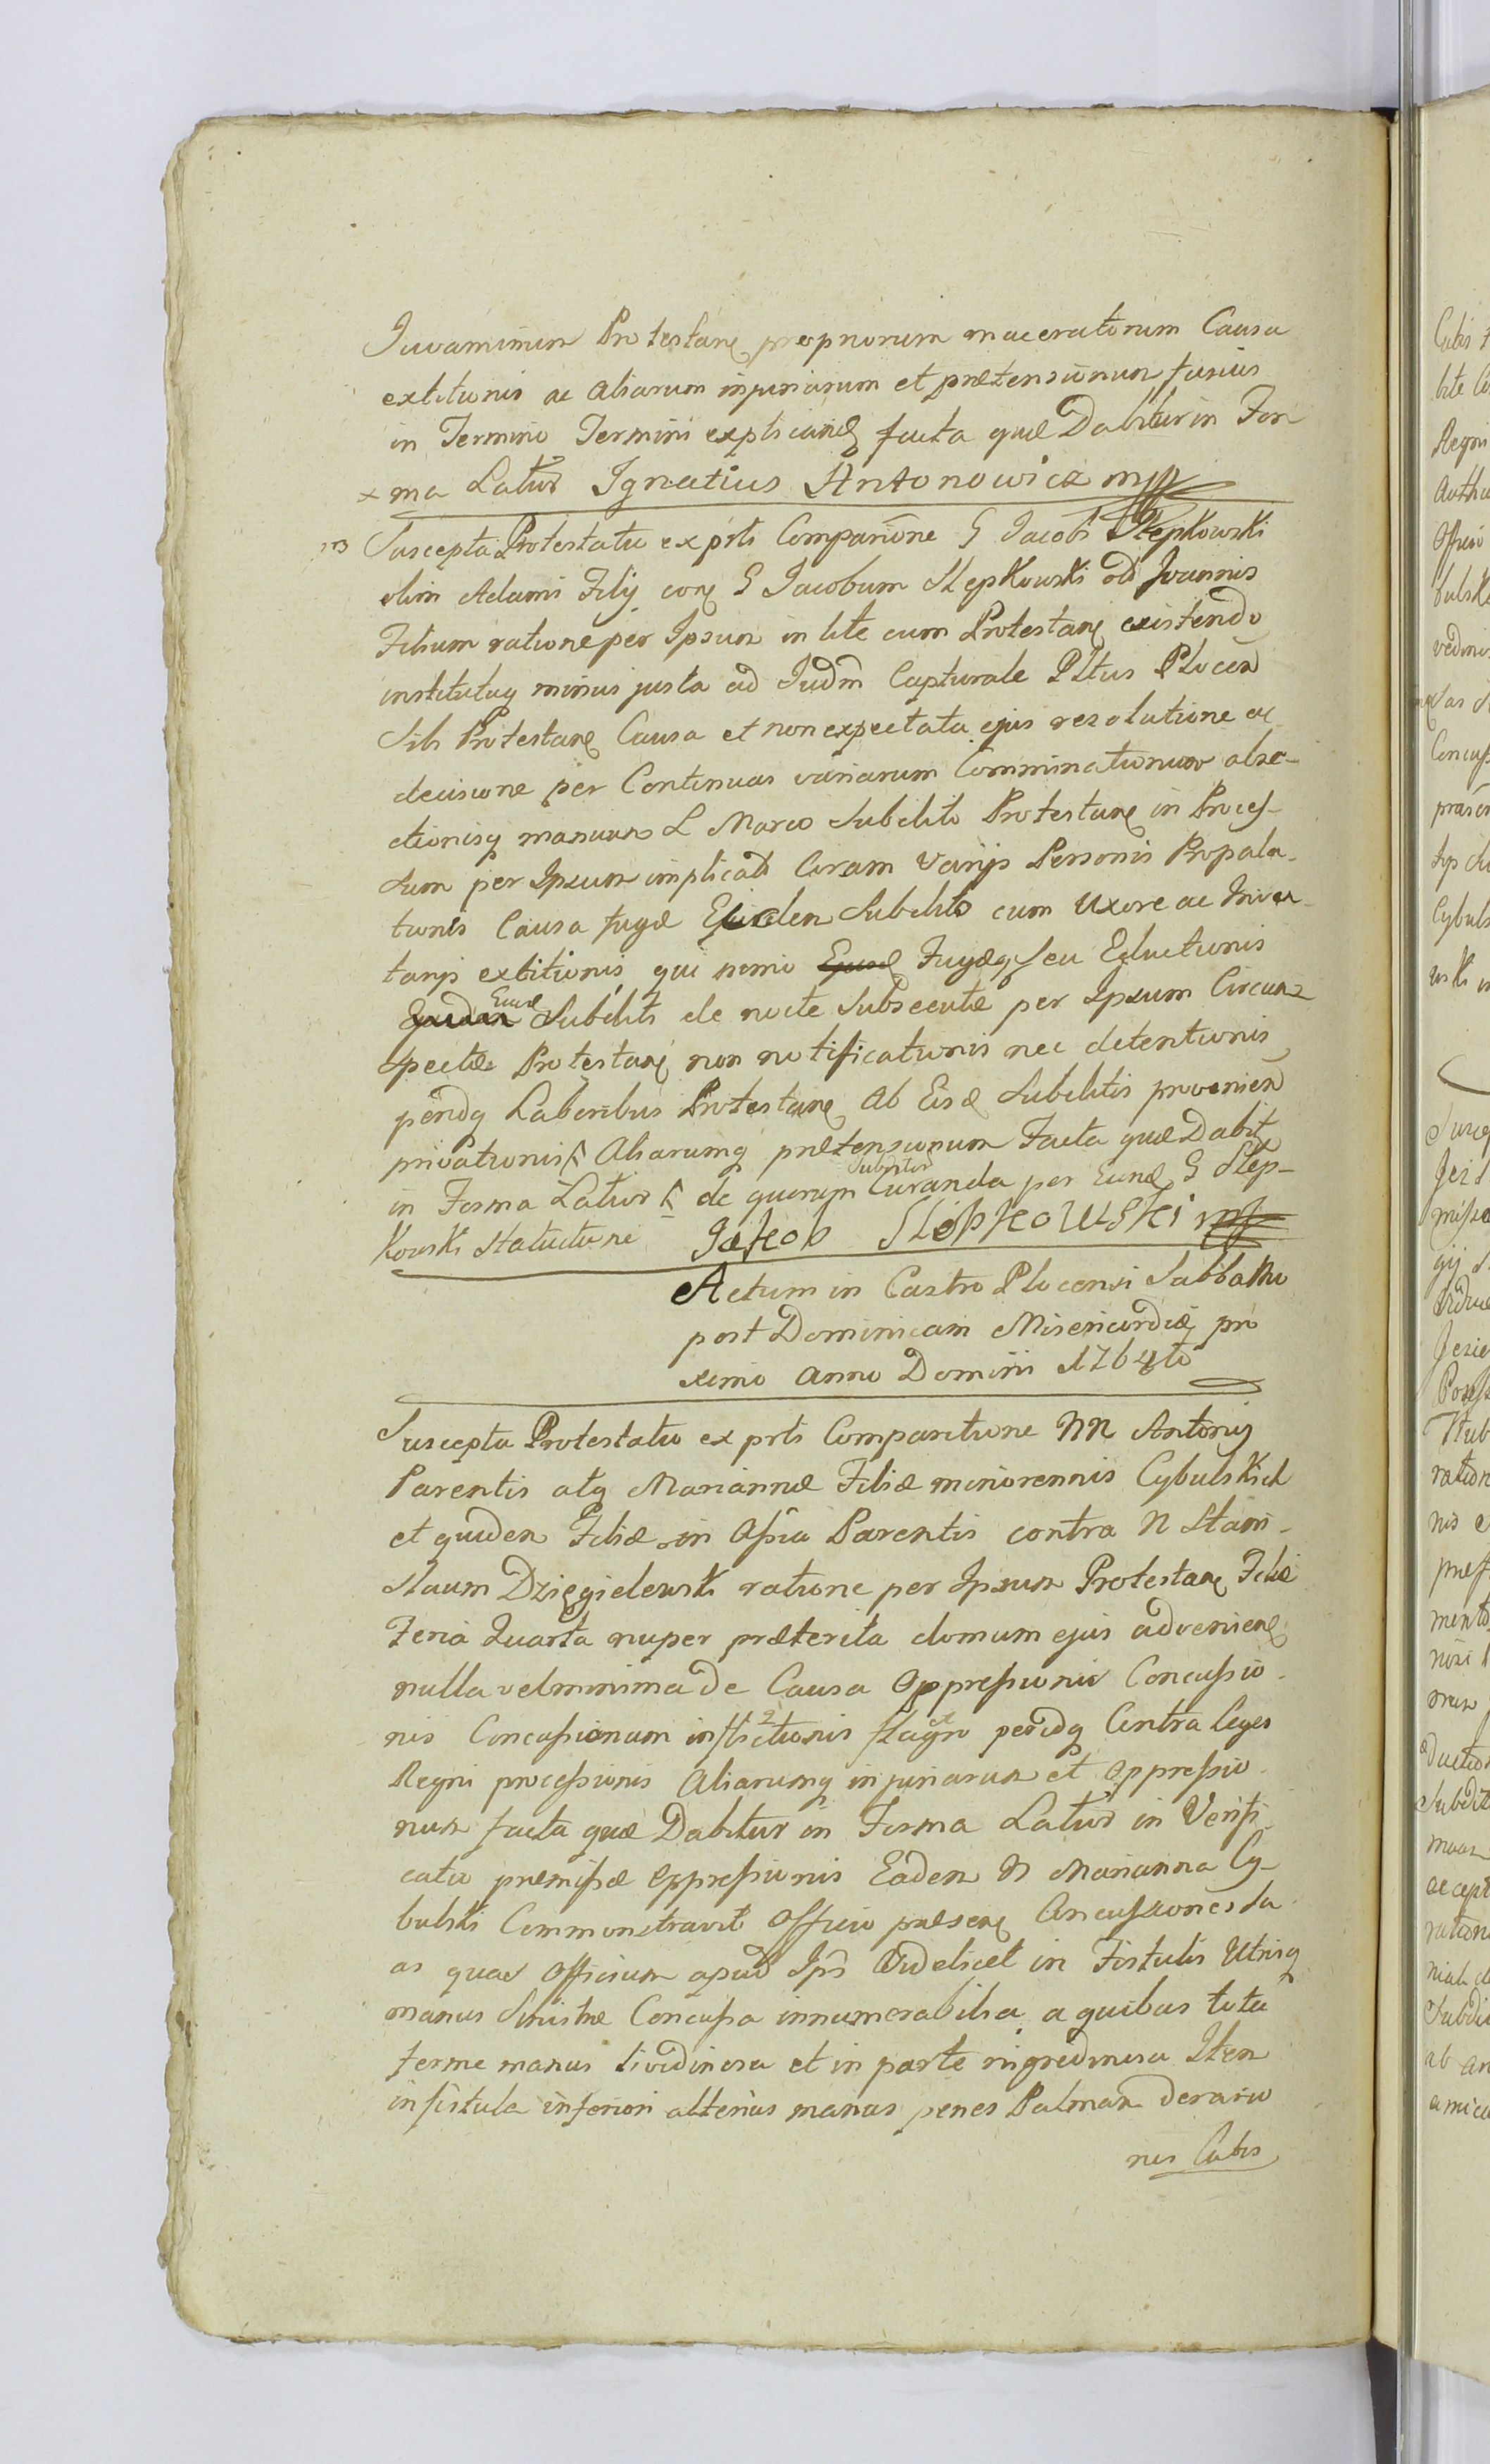 Iuvaminum Protestanẹ propriorum maceratorum Causa
extitionis ac aliarum injuriarum et prætensionum fusius
in Termino Termini explicanẹ facta quæ Dabitur in For
× ma Latius Ignatius Antonowicz mp
Suscepta Protestatio ex prti Comparitione G Iacobi Slepkowski
olim Adami Filij conẹ G Iacobum Slepkowski od Joannis
Filium ratione per Ipsum in lite cum Protestanẹ existendo
institutaq minus justa ad Judm Capturale Pltus Plocen
Sibi Protestanẹ Causa et non expectata ejus rezolutione ac
decisione per Continuas variarum Comminationum
ctionisq manuum L Marco Subdito Protestanẹ in Proces-
sum per Ipsum implicati Coram Varijs Personis Propala-
tionis Causa fugæ Ejusdem Subditi cum Uxore ac Inven-
tarijs extitionis, qui nimio Fugæq seu Eductionis
Eund Subditi de nocte Subsecutæ per Ipsum Circum
spectæ Protestanẹ non notificationis nec detentionis
peridq Laboribus Protestanẹ Ab Eisd Subditis provenien
privationis Aliarumq prætensionum Facta quæ Dabit
in Forma Latius de quorum Subditor Curanda per Eund G Slep-
kowski Statuitione Jakob Slepkowski mp
Actum in Castro Plocensi Sabbatho
post Dominicam Misericordiæ pro
ximo Anno Domini 1764to
Suscepta Protestatio ex prti Comparitione NN Antonij
Parentis atq Mariannæ Filiæ minorennis Cybulskich
et quidem Filiæ in Assia Parentis contra N Stani-
slaum Dzięgielewski ratione per Ipsum Protestanẹ Filiæ
Feria Quarta nuper præterita domum ejus advenienẹ
nulla vel minima de Causa Oppressionis Concussio-
nis Concussionum inflictionis peridq Contra Leges
Regni processionis Aliarumq injuriarum et Oppressio-
num facta quæ Dabitur in Forma Latius in Verifi-
catio præmissæ Oppressionis Eadem N Marianna Cy-
bulski Commonstravit Officio præsenẹ Concussiones su
as quas Officium apud Ips Videlicet in Fistulis Utrisq
manus Sinistræ Concussa innumerabilia a quibus tota
ferme manus lividinosa et in parte nigredinosa Item
in fistula inferiori alterius manus penes Palmam deraro
nis Cutis